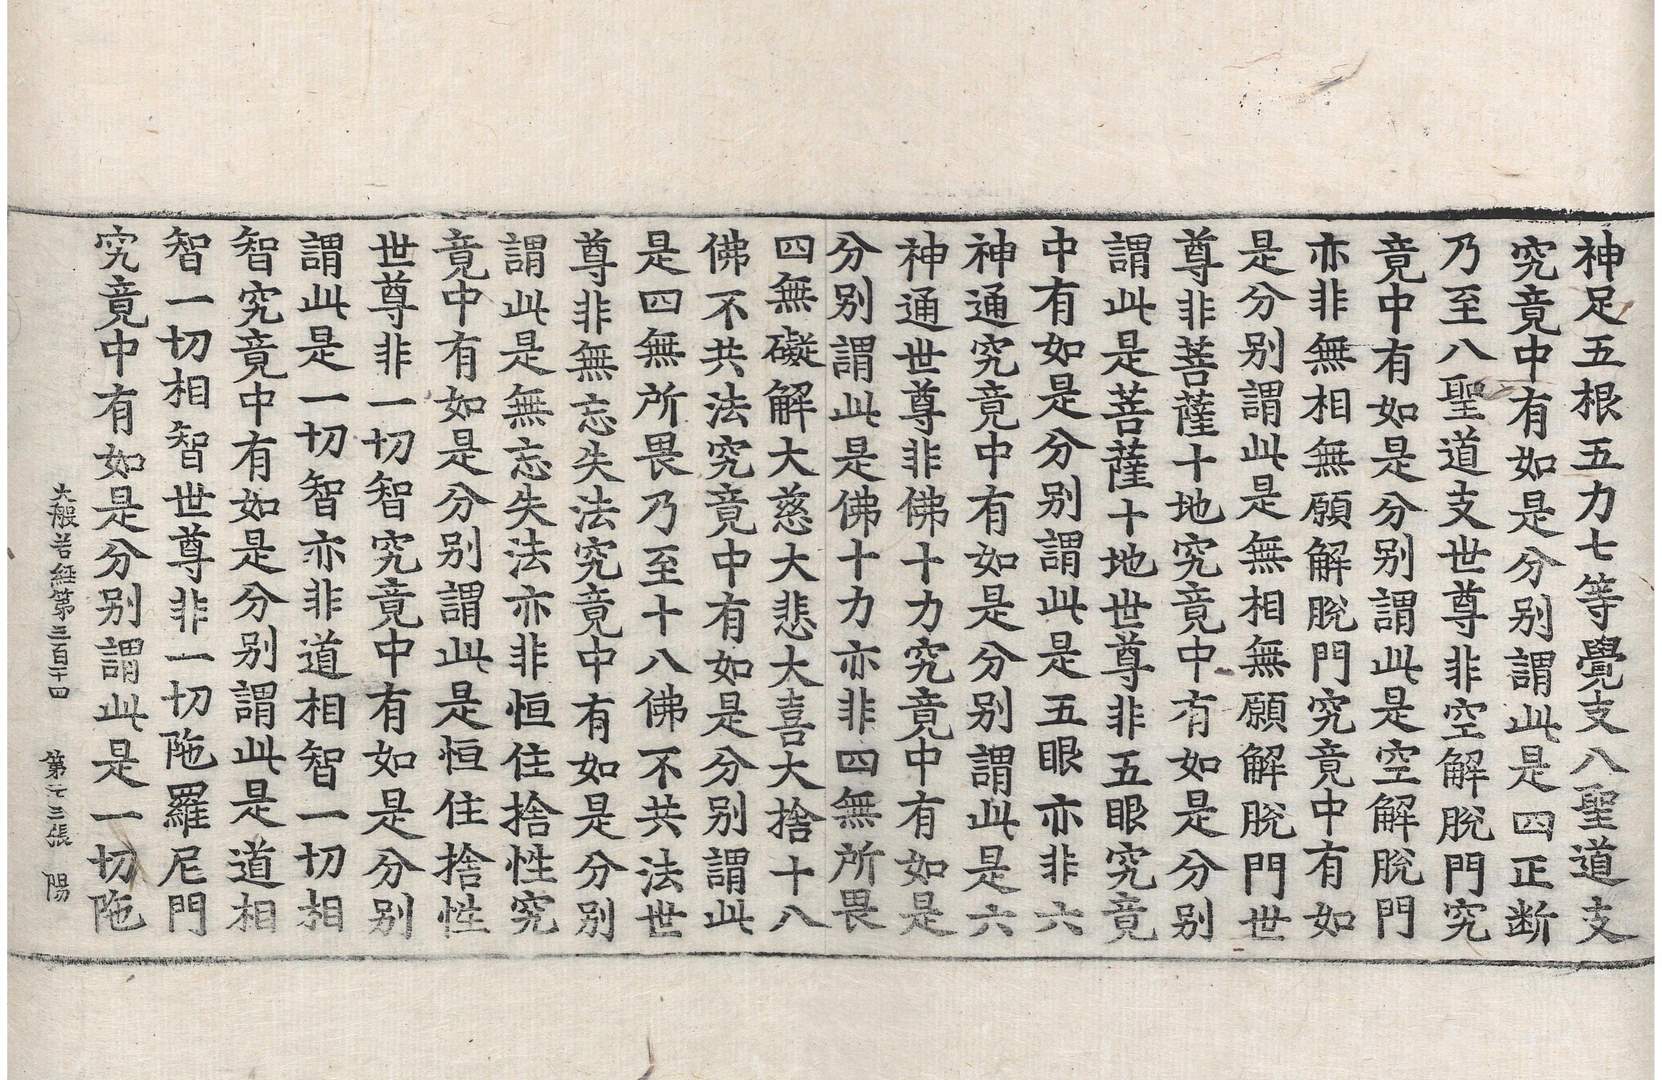 神足五根五力七等覺支八聖道支
究竟中有如是分别謂此是四正断
乃至八聖道支世尊非空解脫門究
竟中有如是分别謂此是空解脫門
亦非無相無願解脫門究竟中有如
是分别謂此是無相無願解脫門世
尊非菩薩十地究竟中有如是分别
謂此是菩薩十地世尊非五眼究竟
中有如是分别謂此是五眼亦非六
神通究竟中有如是分别謂此是六
神通世尊非佛十力究竟中有如是
分别謂此是佛十力亦非四無所畏
四無礙解大慈大悲大喜大捨十八
佛不共法究竟中有如是分别謂此
是四無所畏乃至十八佛不共法世
尊非無忘失法究竟中有如是分别
謂此是無忘失法亦非恒住捨性究
竟中有如是分别謂此是恒住捨性
世尊非一切智智究竟中有如是分别
謂此是一切智亦非道相智一切相
智究竟中有如是分别謂此是道相
智一切相智世尊非一切陁羅尼門
究竟中有如是分别謂此是一切陁
大般若經第三百十四 第十三張 陽